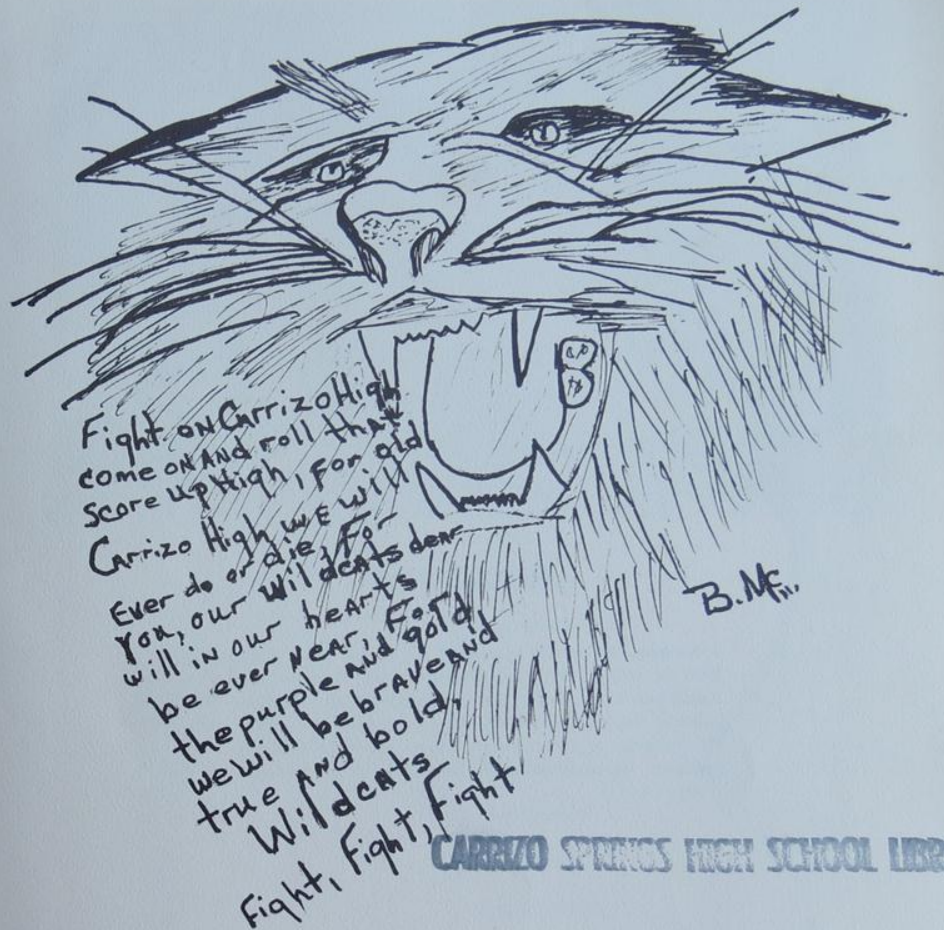 Fight on Carrizo High
come on and roll that
score up High, for old
Carrizo High we will
Ever do or die, For
You, our Wildcats dear
will in our hearts
be ever near, For
the purple and gold
we will be brave and
true and bold,
Wildcats
Fight, Fight, Fight
B. Mc
CARRIZO SPRINGS HIGH SCHOOL LIBR